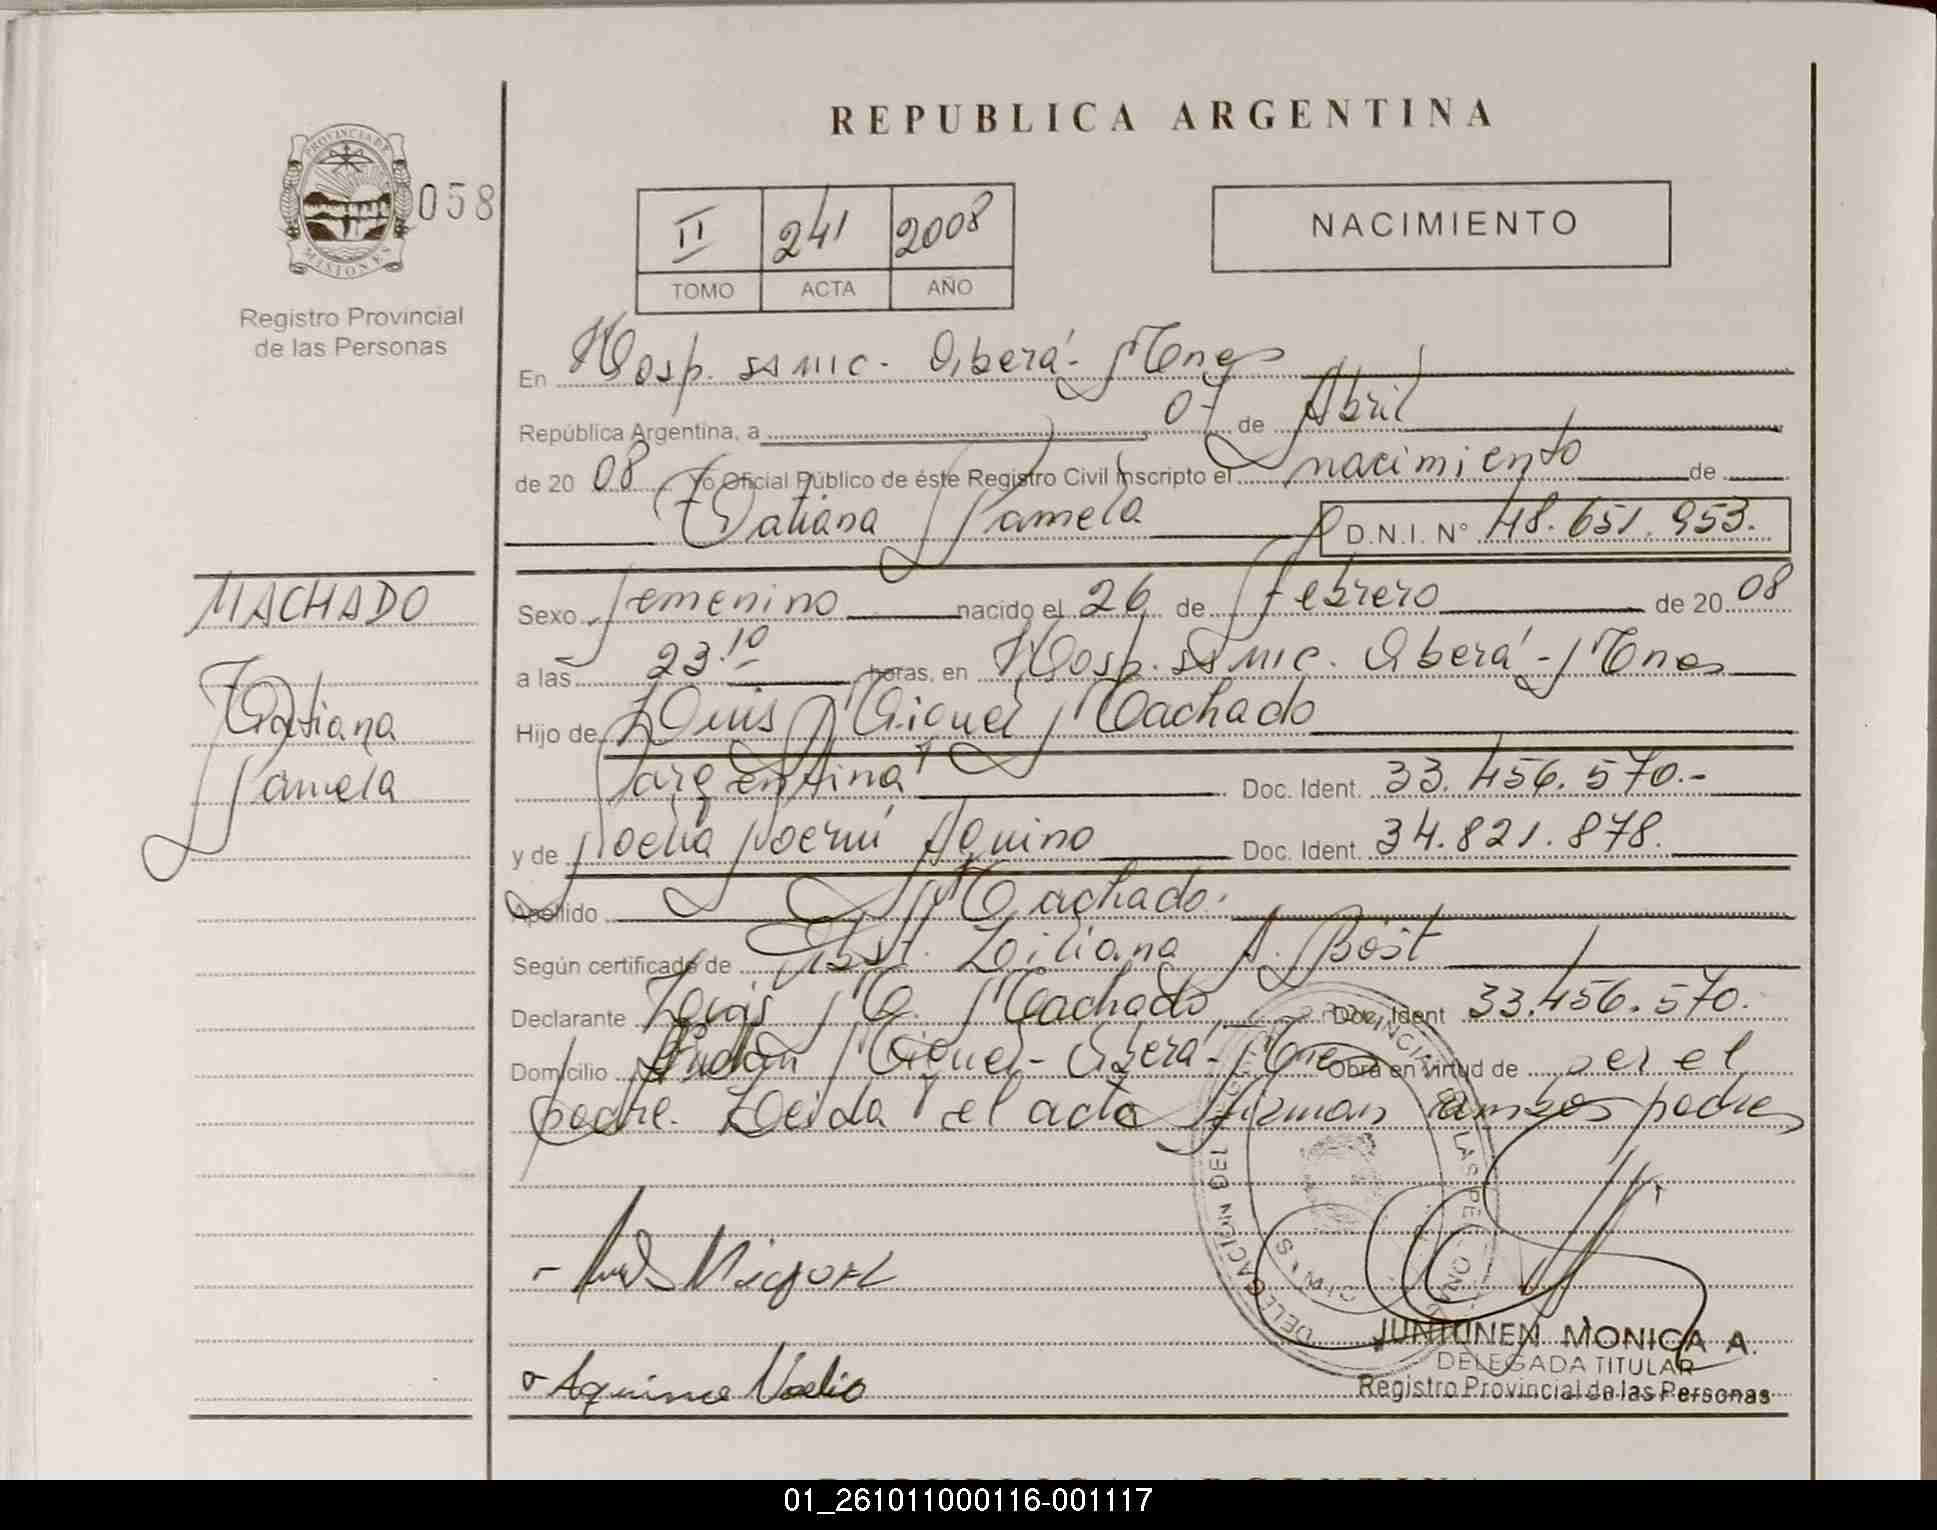 REPUBLICA ARGENTINA
PROVINCIA DE
MISIONES
058
Registro Provincial
de las Personas
II 241 2008
TOMO ACTA AÑO
NACIMIENTO
En Hosp. SAMIC. Oberá - Mnes
República Argentina, a 07 de Abril
de 20 08 Yo Oficial Público de éste Registro Civil Inscripto el nacimiento de
Tatiana Pamela D.N.I. N° 48.651.953.
MACHADO
Tatiana
Pamela
Sexo femenino nacido el 26 de febrero de 20 08
a las 23.10 horas, en Hosp. SAMIC. Oberá - Mnes
Hijo de Luis Miguel Machado
argentina Doc. Ident. 33.456.570.-
y de Noelia Noemí Aquino Doc. Ident. 34.821.878.
Apellido Machado.
Según certificado de Obst. Liliana A. Bost
Declarante Luis M. Machado Doc. Ident 33.456.570.
Domicilio Miguel - Oberá - Mnes Obra en virtud de ser el
padre. Leida el acta firman ambos padres
- Luis Miguel
- Aquino Noelia
DELEGACION DEL
JUNTUNEN MONICA A.
DELEGADA TITULAR
Registro Provincial de las Personas
01_261011000116-001117